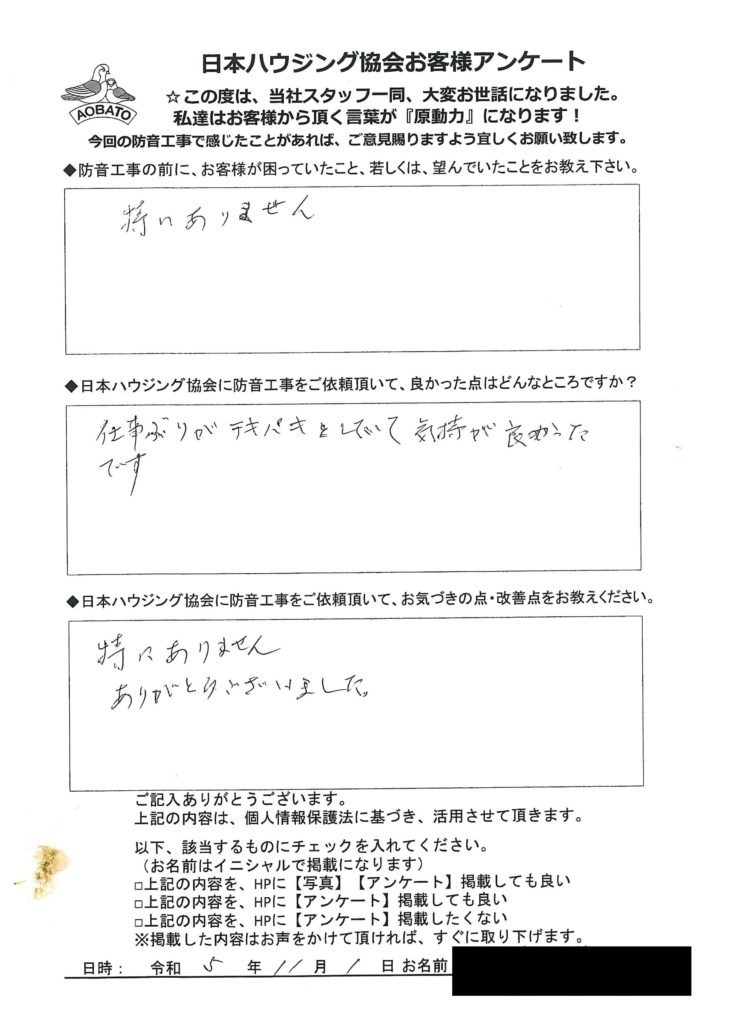 日本ハウジング協会お客様アンケート
AOBATO
☆この度は、当社スタッフ一同、大変お世話になりました。
私達はお客様から頂く言葉が『原動力』になります！
今回の防音工事で感じたことがあれば、ご意見賜りますよう宜しくお願い致します。
◆防音工事の前に、お客様が困っていたこと、若しくは、望んでいたことをお教え下さい。
特にありません
◆日本ハウジング協会に防音工事をご依頼頂いて、良かった点はどんなところですか？
仕事ぶりがテキパキとしていて気持が良かった
です
◆日本ハウジング協会に防音工事をご依頼頂いて、お気づきの点・改善点をお教えください。
特にありません
ありがとうございました。
ご記入ありがとうございます。
上記の内容は、個人情報保護法に基づき、活用させて頂きます。
以下、該当するものにチェックを入れてください。
（お名前はイニシャルで掲載になります）
□上記の内容を、HPに【写真】【アンケート】掲載しても良い
□上記の内容を、HPに【アンケート】掲載しても良い
□上記の内容を、HPに【アンケート】掲載したくない
※掲載した内容はお声をかけて頂ければ、すぐに取り下げます。
日時： 令和 5 年 11 月 1 日 お名前